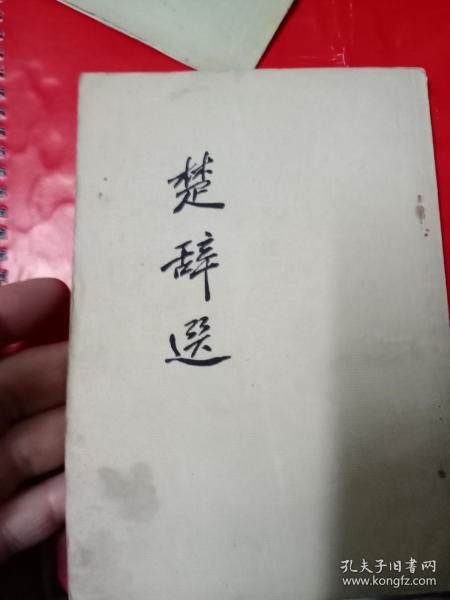 楚辞選
孔夫子旧书网
www.kongfz.com